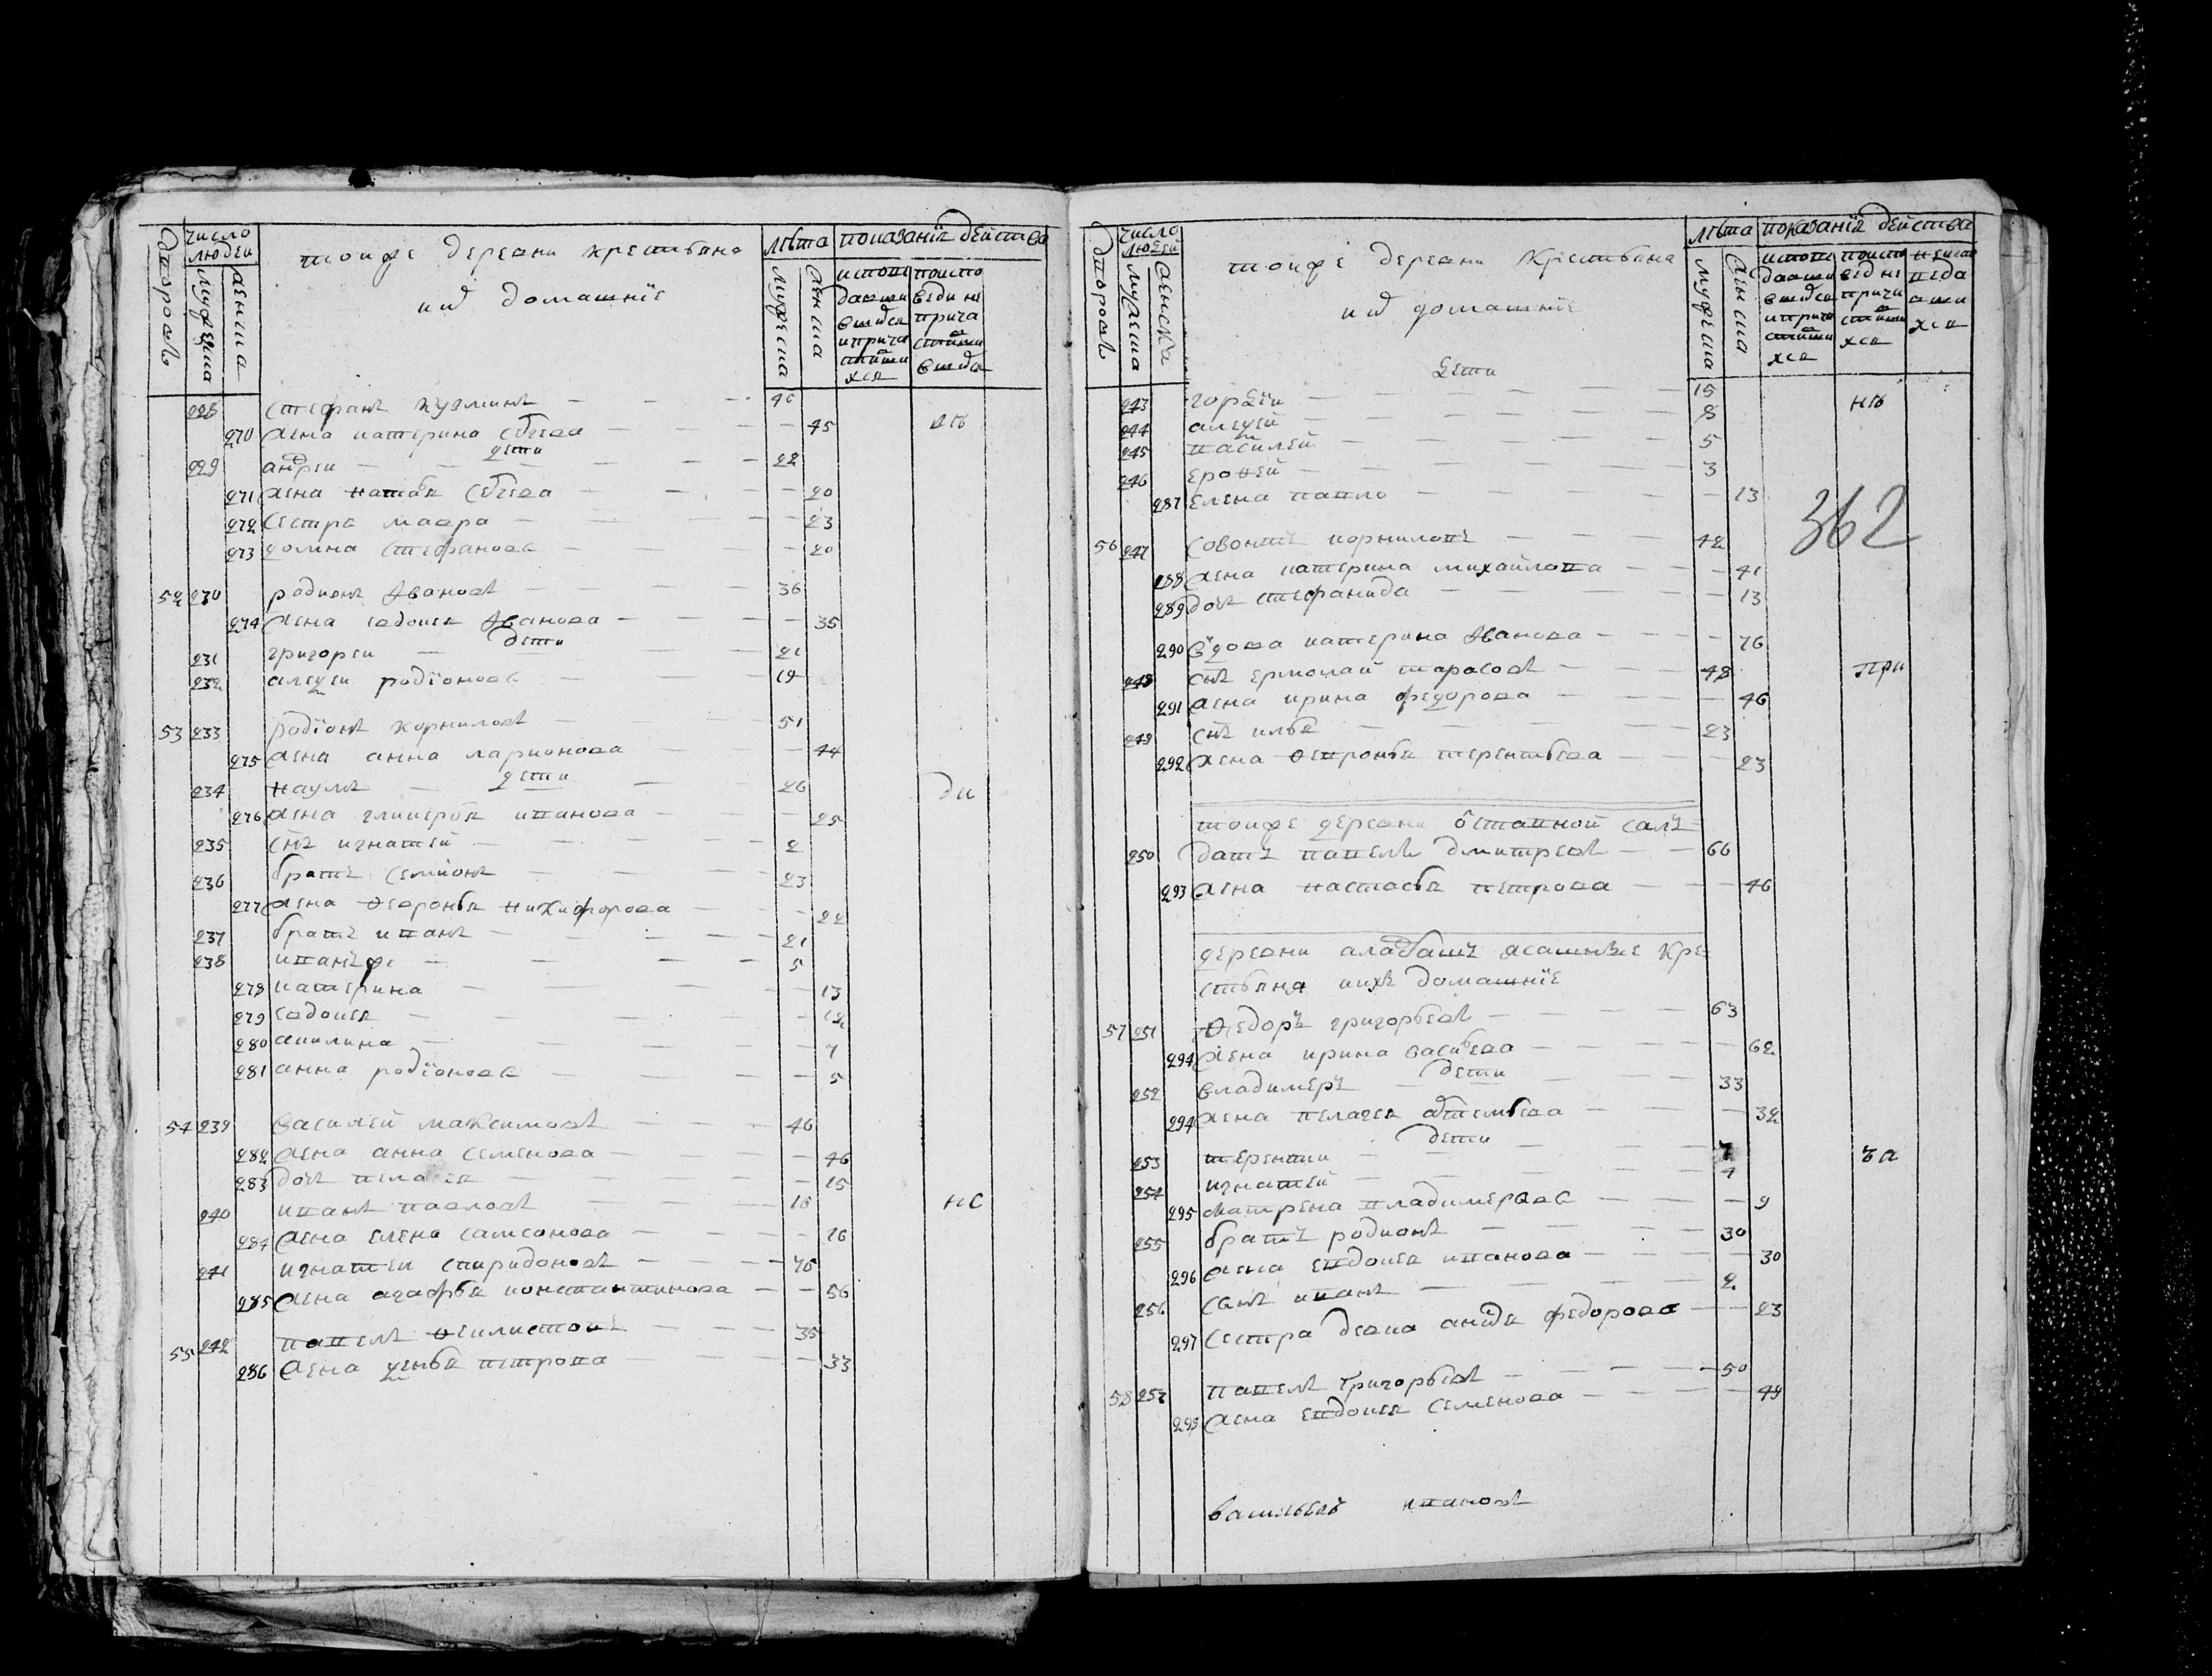 дворовъ
число людей
мужеска
женска
тоиже деревни крестьяня
и иˣ домашнїе
лѣта
мужеска
женска
показанїя действа
исповедавшиˣся и причастившихся
по исповеди не причастившиˣся
228 стефанъ кузминъ 40
270 жена катерина савѣева 45
дети
229 андреи 22
271 жена наталья савѣева 20
272 сестра мавра 23
273 домна стефанова 20
52 230 родионъ Ивановъ 36
274 жена евдокея Иванова 35
дети
231 григореи 21
232 алеѯеи родїонова 12
53 233 родїонъ корниловъ 51
275 жена анна ларионова 44
дети
234 наумъ 26
276 жена гликерїя иванова 25
235 снъ игнатей 2
236 братъ семионъ 23
277 жена ѳевронья никифорова 22
237 братъ иванъ 21
238 иванъ же 5
278 катерина 13
279 евдокея 12
280 акилина 7
281 анна родїонова 5
54 239 василей максимовъ 46
282 жена анна семенова 46
283 дочь пелагея 15
240 иванъ павловъ 16
284 жена елена самсонова 26
241 игнатеи спиридоновъ 75
285 жена агафья константинова 56
55 242 павелъ ѳеилистовъ 35
286 жена ѯенья петрова 33
дворовъ
число людей
мужеска
женска
тоиже деревни крестьяня
и иˣ домашнїе
лѣта
мужеска
женска
показанїя действа
дети
243 гордїи 15
244 алеѯей 8
245 василей 5
246 ерофей 3
287 елена павло 13
362
56 247 совонтъ корниловъ 42
288 жена катерина михайлова 41
289 дочь стефанида 13
290 вдова катерина Иванова 76
248 снъ ермолай тарасовъ 48 при
291 жена ирина федорова 46
249 снъ илья 23
292 жена ѳевронья терентьева 23
тоиже деревни отставной сал=
250 датъ павелъ дмитревъ 66
293 жена настасья петрова 46
деревни алабашъ ясашные кре=
стьяня и ихъ домашнїе
57 251 ѳедоръ григорьевъ 63
294 жена ирина васильева 62
дети
252 владимеръ 33
294 жена пелагея артемьева 32
дети
253 терентии 7
254 игнатей 4
295 матрена владимерова 9
255 братъ родионъ 30
296 жена евдокея иванова 30
256 сынъ иванъ 2
297 сестра девка анися федорова 23
58 257 павелъ григорьевъ 50
298 жена евдокея семенова 49
васильевъ ивановъ